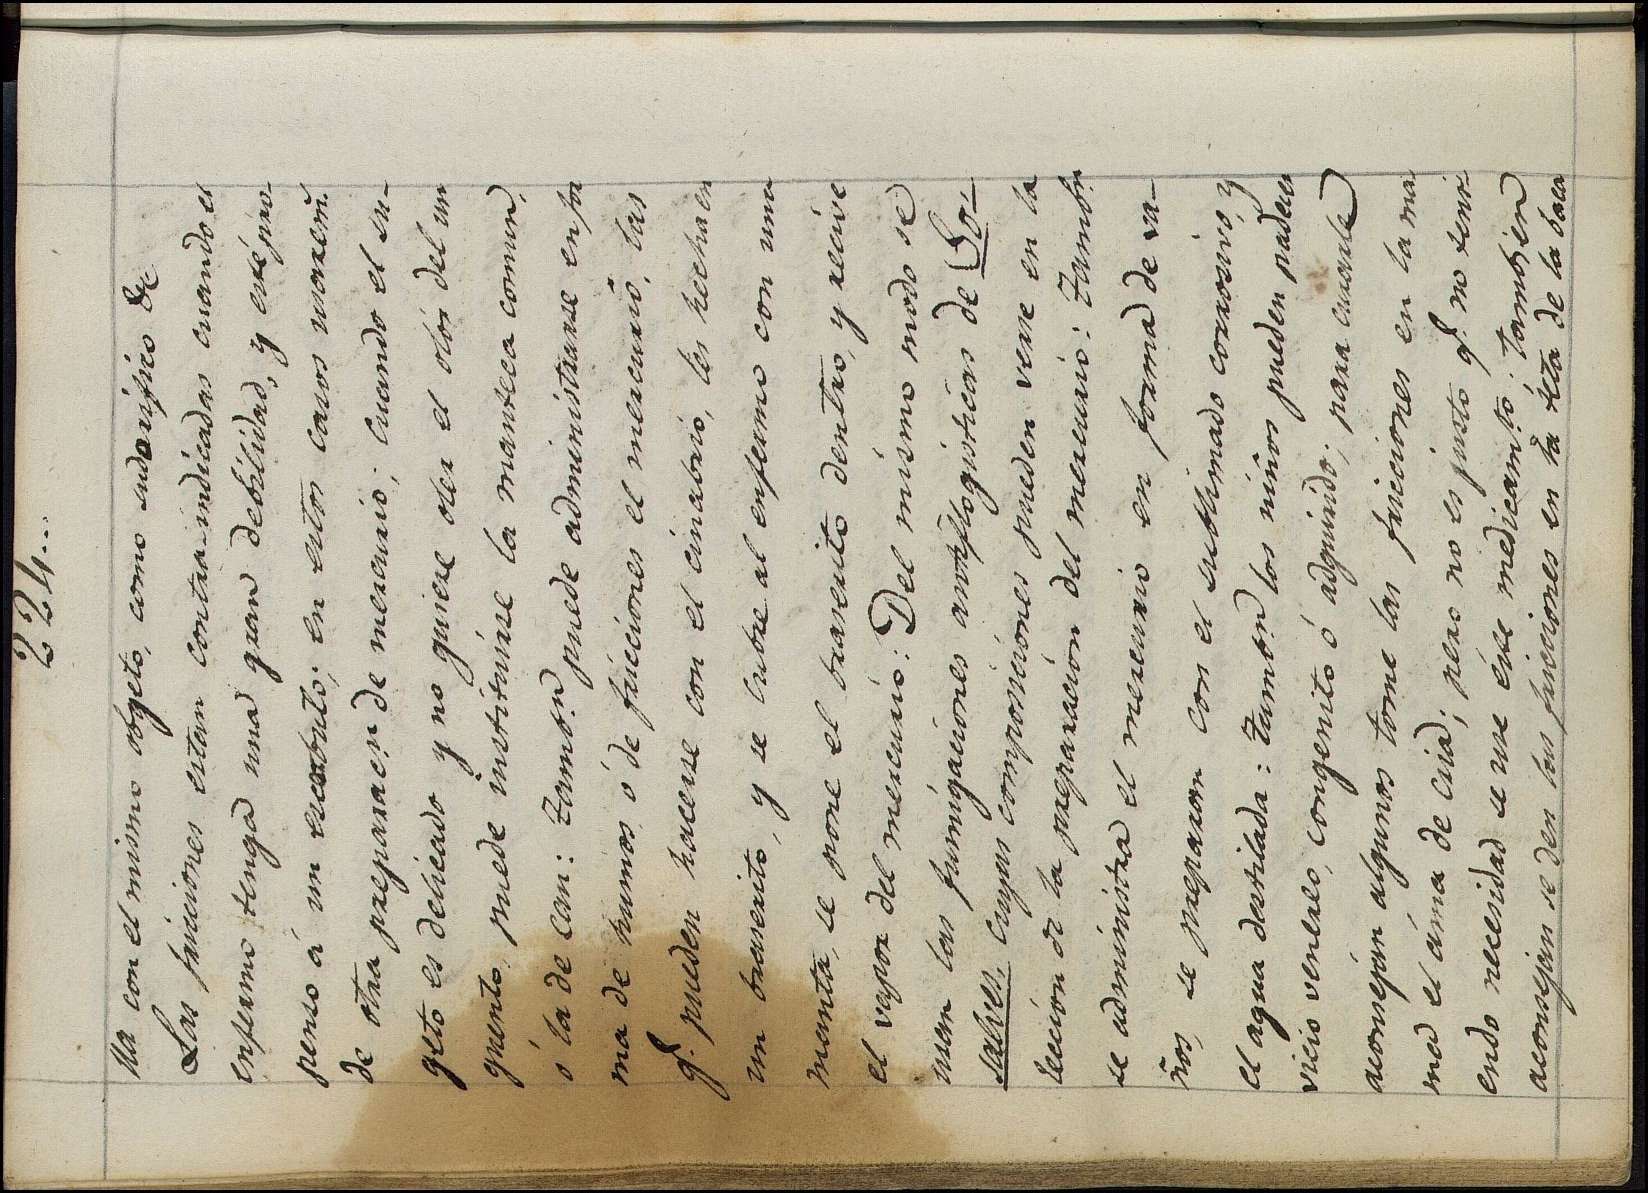 224...
lla con el mismo objeto, como sudorifico &c
Las fricciones estan contra-indicadas cuando el
enfermo tenga una gran debilidad, y esté pro-
penso á un escorbuto; en estos casos usarem.s
de otra preparac.n de mercurio; cuando el su-
geto es delicado y no quiere oler el olor del un
guento, puede instituirse la manteca comun,
ó la de cam: Tambn puede administrarse en for
ma de humos, ó de fricciones el mercurio, las
q.e pueden hacerse con el cinabrio, les hecha en
un braserito, y se cubre al enfermo con una
manta, se pone el braserito dentro, y recive
el vapor del mercurio: Del mismo modo se
usan las fumigaciones antiflogisticas de So-
salves, cuyas composiciones pueden verse en la
leccion de la preparacion del mercurio: Tambn
se administra el mercurio en forma de va-
ños, se preparan con el sublimado corrosivo, y
el agua destilada: Tambn los niños pueden padecer
vicio venereo, congenito ó adquirido; para curarle
aconsejan algunos tome las fricciones en la ma
ma el áma de cria; pero no es justo q.e no teni-
endo necesidad se use éste medicam.to; tambien
aconsejan se den las fricciones en la téta de la baca